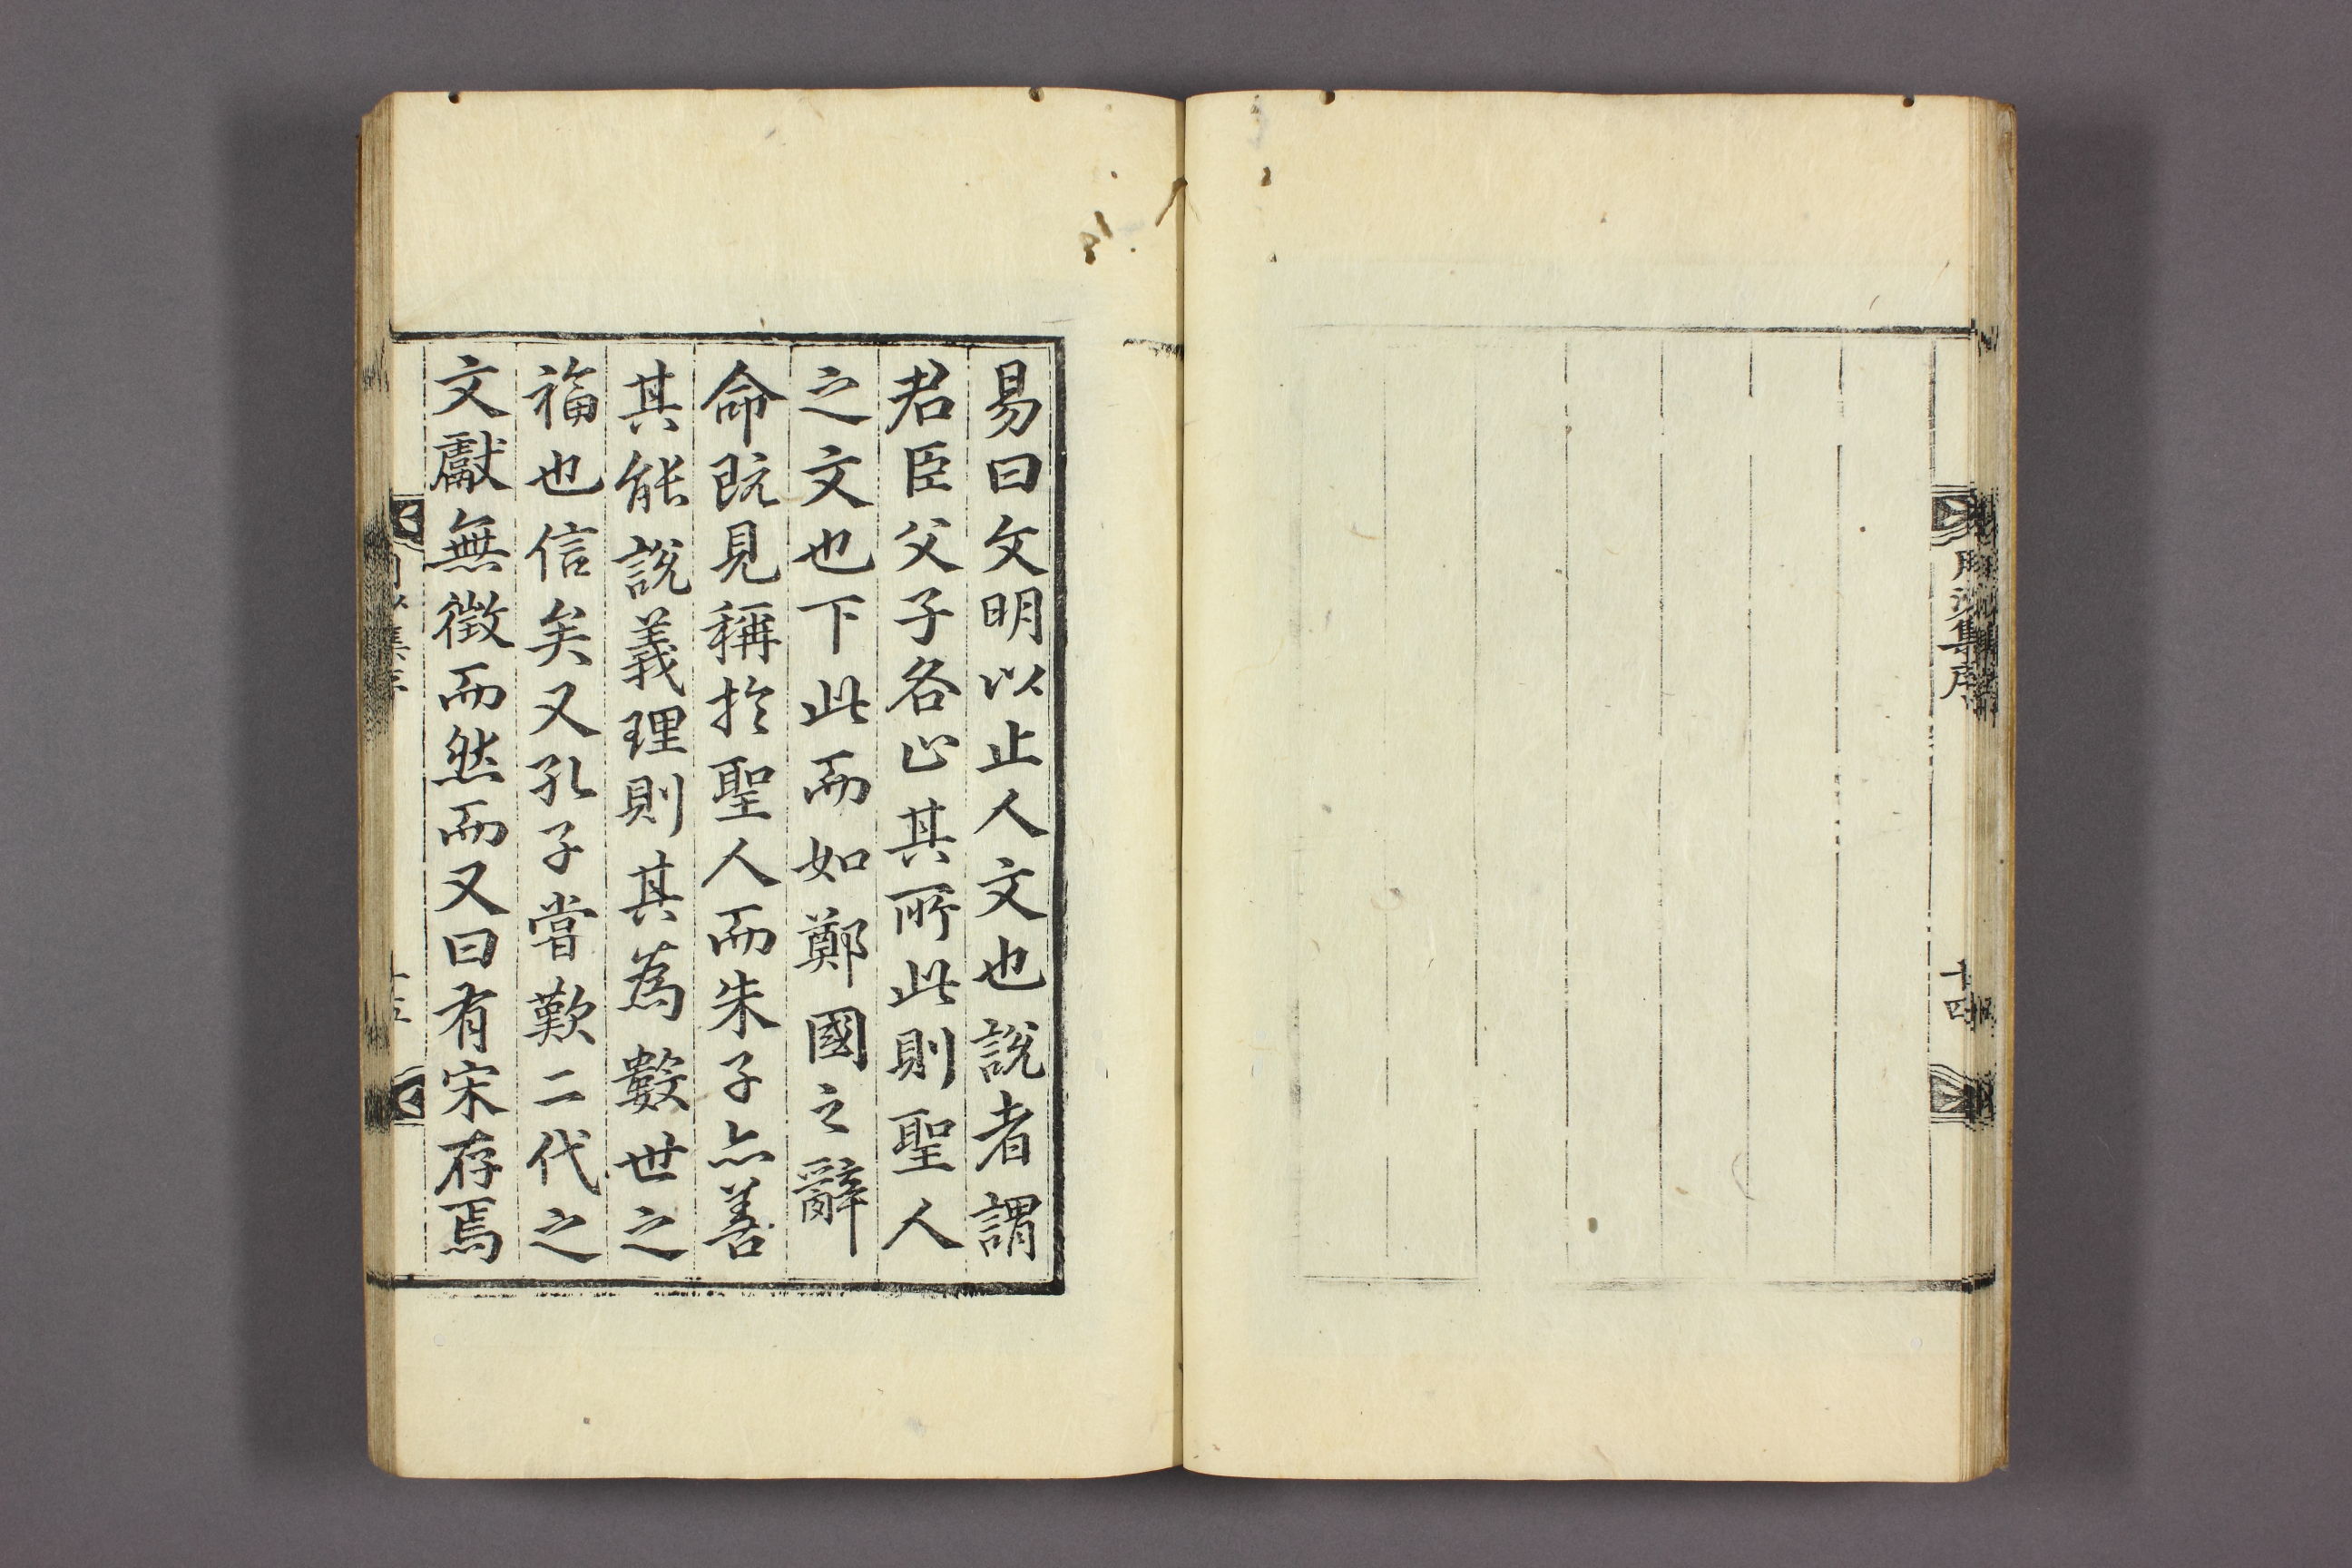 月沙集序
十四
易曰文明以止人文也說者謂
君臣父子各止其所此則聖人
之文也下此而如鄭國之辭
命既見稱於聖人而朱子亦善
其能說義理則其為數世之
福也信矣又孔子嘗歎二代之
文獻無徵而然而又曰有宋存焉